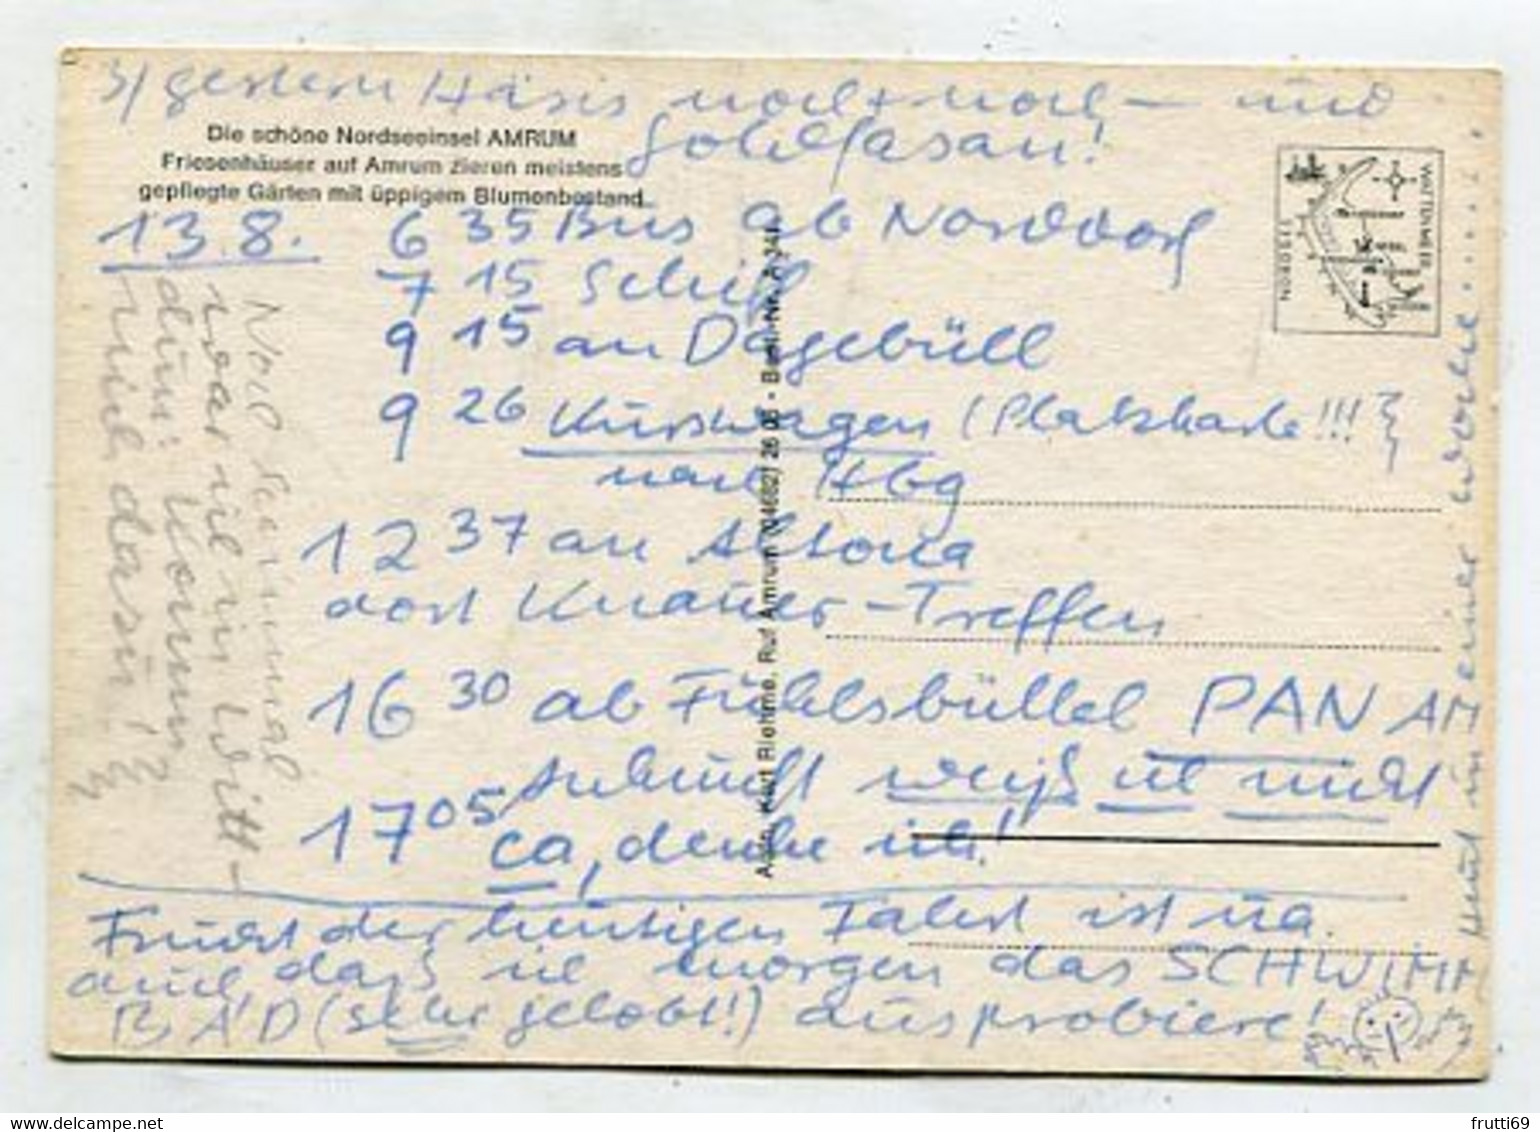 3/ gestern Häsis noch + noch — und
Goldfasan!
Die schöne Nordseeinsel AMRUM
Friesenhäuser auf Amrum zieren meistens
gepflegte Gärten mit üppigem Blumenbestand
13.8. 6 35 Bus ab Norddorf
7 15 Schiff
9 15 an Dagebüll
9 26 Kurswagen (Platzkarte!!!
nach Hbg
12 37 an Altona
dort Knauer-Treffen
16 30 ab Fuhlsbüttel PAN AM
Ankunft weiß ich nicht
17 05 ca, denke ich!
Frucht der heutigen Fahrt ist ua.
auch, daß ich morgen das SCHWIMM
BAD (sehr gelobt!) ausprobiere!
Noch
war ich in Witt-
dün: Komm
nich dasu!?
Heut in einer Woche.......
Kurt Riehme, Ruf Amrum (04682)
WATTENMEER
EISBRON
frutti69